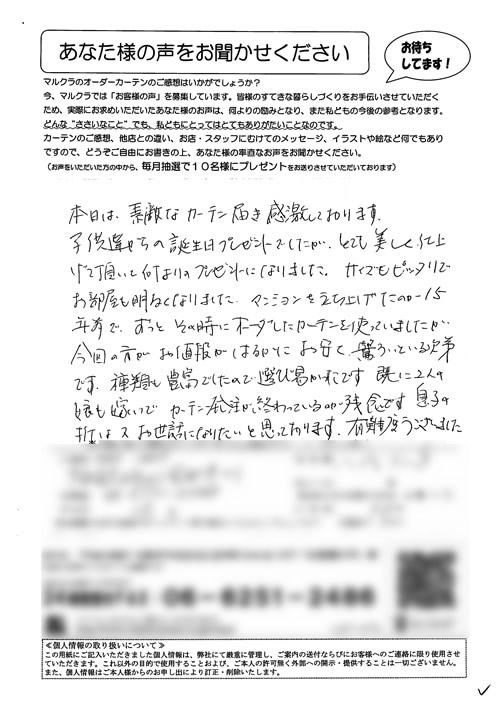 あなた様の声をお聞かせください
お待ち
してます！
マルクラのオーダーカーテンのご感想はいかがでしょうか？
今、マルクラでは「お客様の声」を募集しています。皆様のすてきな暮らしづくりをお手伝いさせていただく
ため、実際にお求めいただいたあなた様のお声は、何よりの励みとなり、また私どもの今後の参考となります。
どんな"ささいなこと"でも、私どもにとってはとてもありがたいことなのです。
カーテンのご感想、他店との違い、お店・スタッフにむけてのメッセージ、イラストや絵など何でもあり
ですので、どうぞご自由にお書きの上、あなた様の率直なお声をお聞かせください。
（お声をいただいた方の中から、毎月抽選で１０名様にプレゼントをお送りさせていただいております）
本日は、素敵なカーテン届き感激しております。
子供達からの誕生日プレゼントでしたが、とても美しく仕上
げて頂いて何よりのプレゼントになりました。サイズもピッタリで
お部屋も明るくなりました。マンションを立ち上げたのが15
年前で、ずっとその時にオーダしたカーテンを使っていましたが
今回の方がお値段がはるかにお安く、驚ろいている次第
です。種類も豊富でしたので選び易かたです 既に2人の
娘も嫁いで カーテン発注が終わっているのが残念です 息子の
折は又お世話になりたいと思っております。有難度うございました
06-6251-2486
≪個人情報の取り扱いについて≫
この用紙にご記入いただきました個人情報は、弊社にて厳重に管理し、ご案内の送付ならびにお客様へのご連絡に限り使用させ
ていただきます。これ以外の目的で使用することおよび、ご本人の許可無く外部への開示・提供することは一切ございません。
また、個人情報はご本人様からのお申し出により訂正・削除いたします。